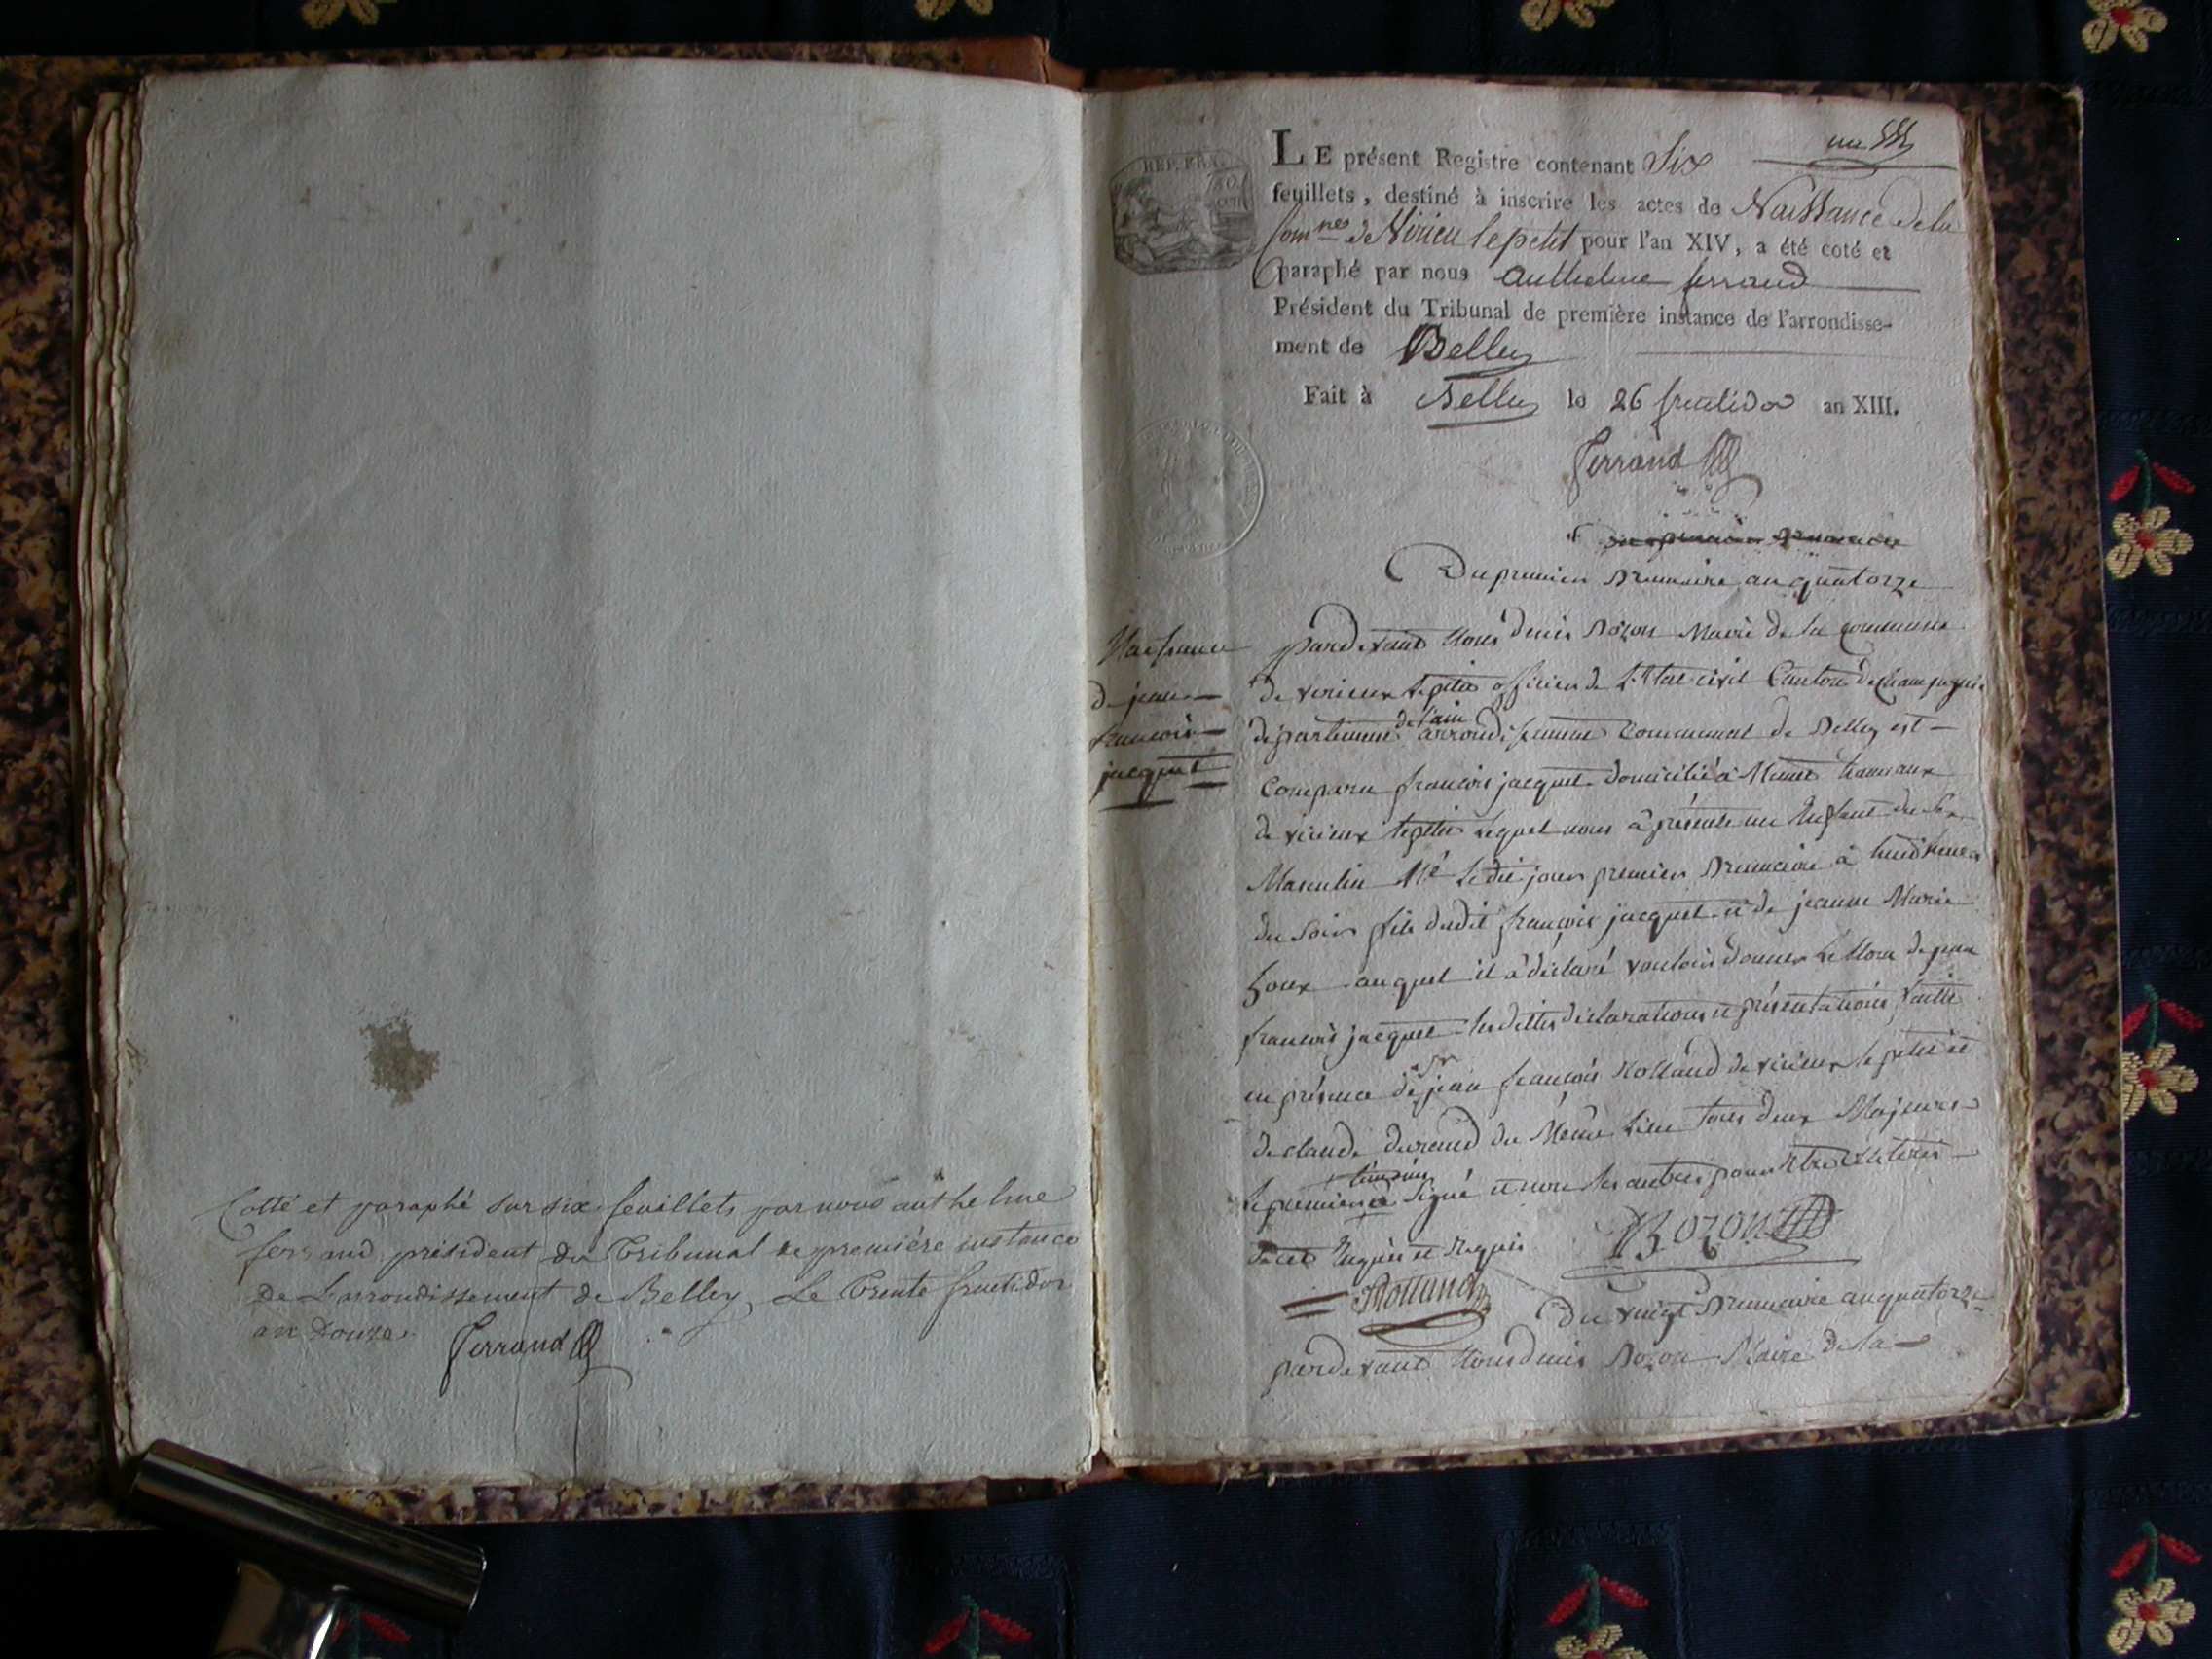 Cotté et paraphé sur six feuillets par nous anthelme
ferrand président du Tribunal de première instance
De L'arrondissement de Belley, Le Trente fructidor
an Douze.
Ferrand
REP. FRA.
LE présent Registre contenant Six
feuillets, destiné à inscrire les actes de Naissance de la
Comnes de Virieu le petit pour l'an XIV, a été coté et
paraphé par nous anthelme ferrand
Président du Tribunal de première instance de l'arrondisse-
ment de Belley
Fait à Belley le 26 fructidor an XIII.
Ferrand
Du premier Brumaire an quatorze
Naissance
de jean
francois
jacquet
pardevant Nous denis Bozon Maire de la commune
de virieux le petit officier de L'Etat civil Canton de Champagne
département de l'ain arrondissement Communal de Belley est
Comparu francois jacquet domicilié à hameaux
de virieux le petit lequel nous à présenté un Enfant du Sexe
Masculin Né Le dit jour premier Brumaire à heures
du Soir fils dudit françois jacquet et de jeanne Marie
auquel il à déclaré vouloir donner Le Nom de jean
francois jacquet les dittes déclarations et présentations faitte
en présence de Sr jean françois Rolland de virieux le petit et
de claude durand du Même Lieu tous deux Majeurs
Le premier témoin a Signé et non les autres pour Etre illiterés
de ce Enquis et Requis
Bozon
Rolland
Du vingt Brumaire an quatorze
pardevant Nous denis Bozon Maire de la